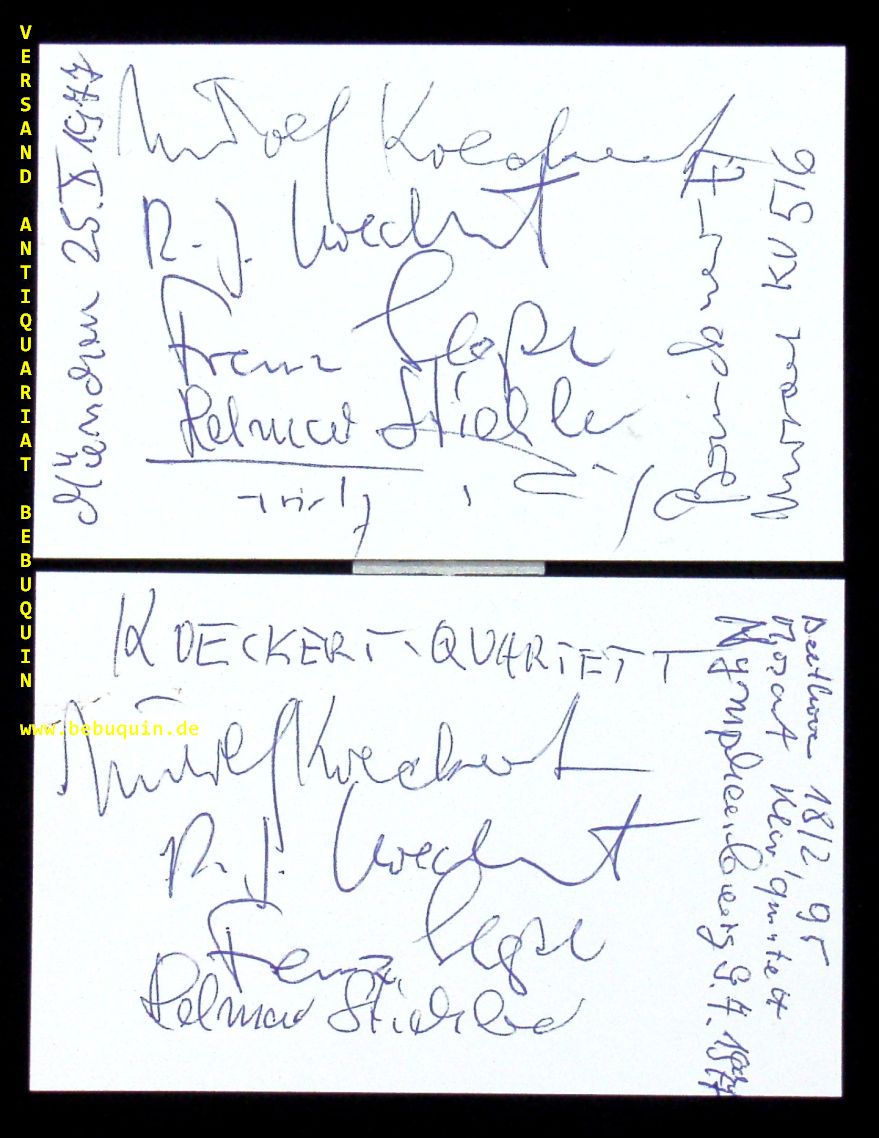 VERSAND ANTIQUARIAT BEBUQUIN
www.bebuquin.de
München 25.X 1977
Rudolf Koeckert
R. J. Koeckert
Franz Schessl
Helmar Stiehler
Mozart KV 516
KOECKERT-QUARTETT
Rudolf Koeckert
R. J. Koeckert
Franz Schessl
Helmar Stiehler
Beethoven 18/2, 95
Mozart Klar. quintett
Nymphenburg 9.7.1977